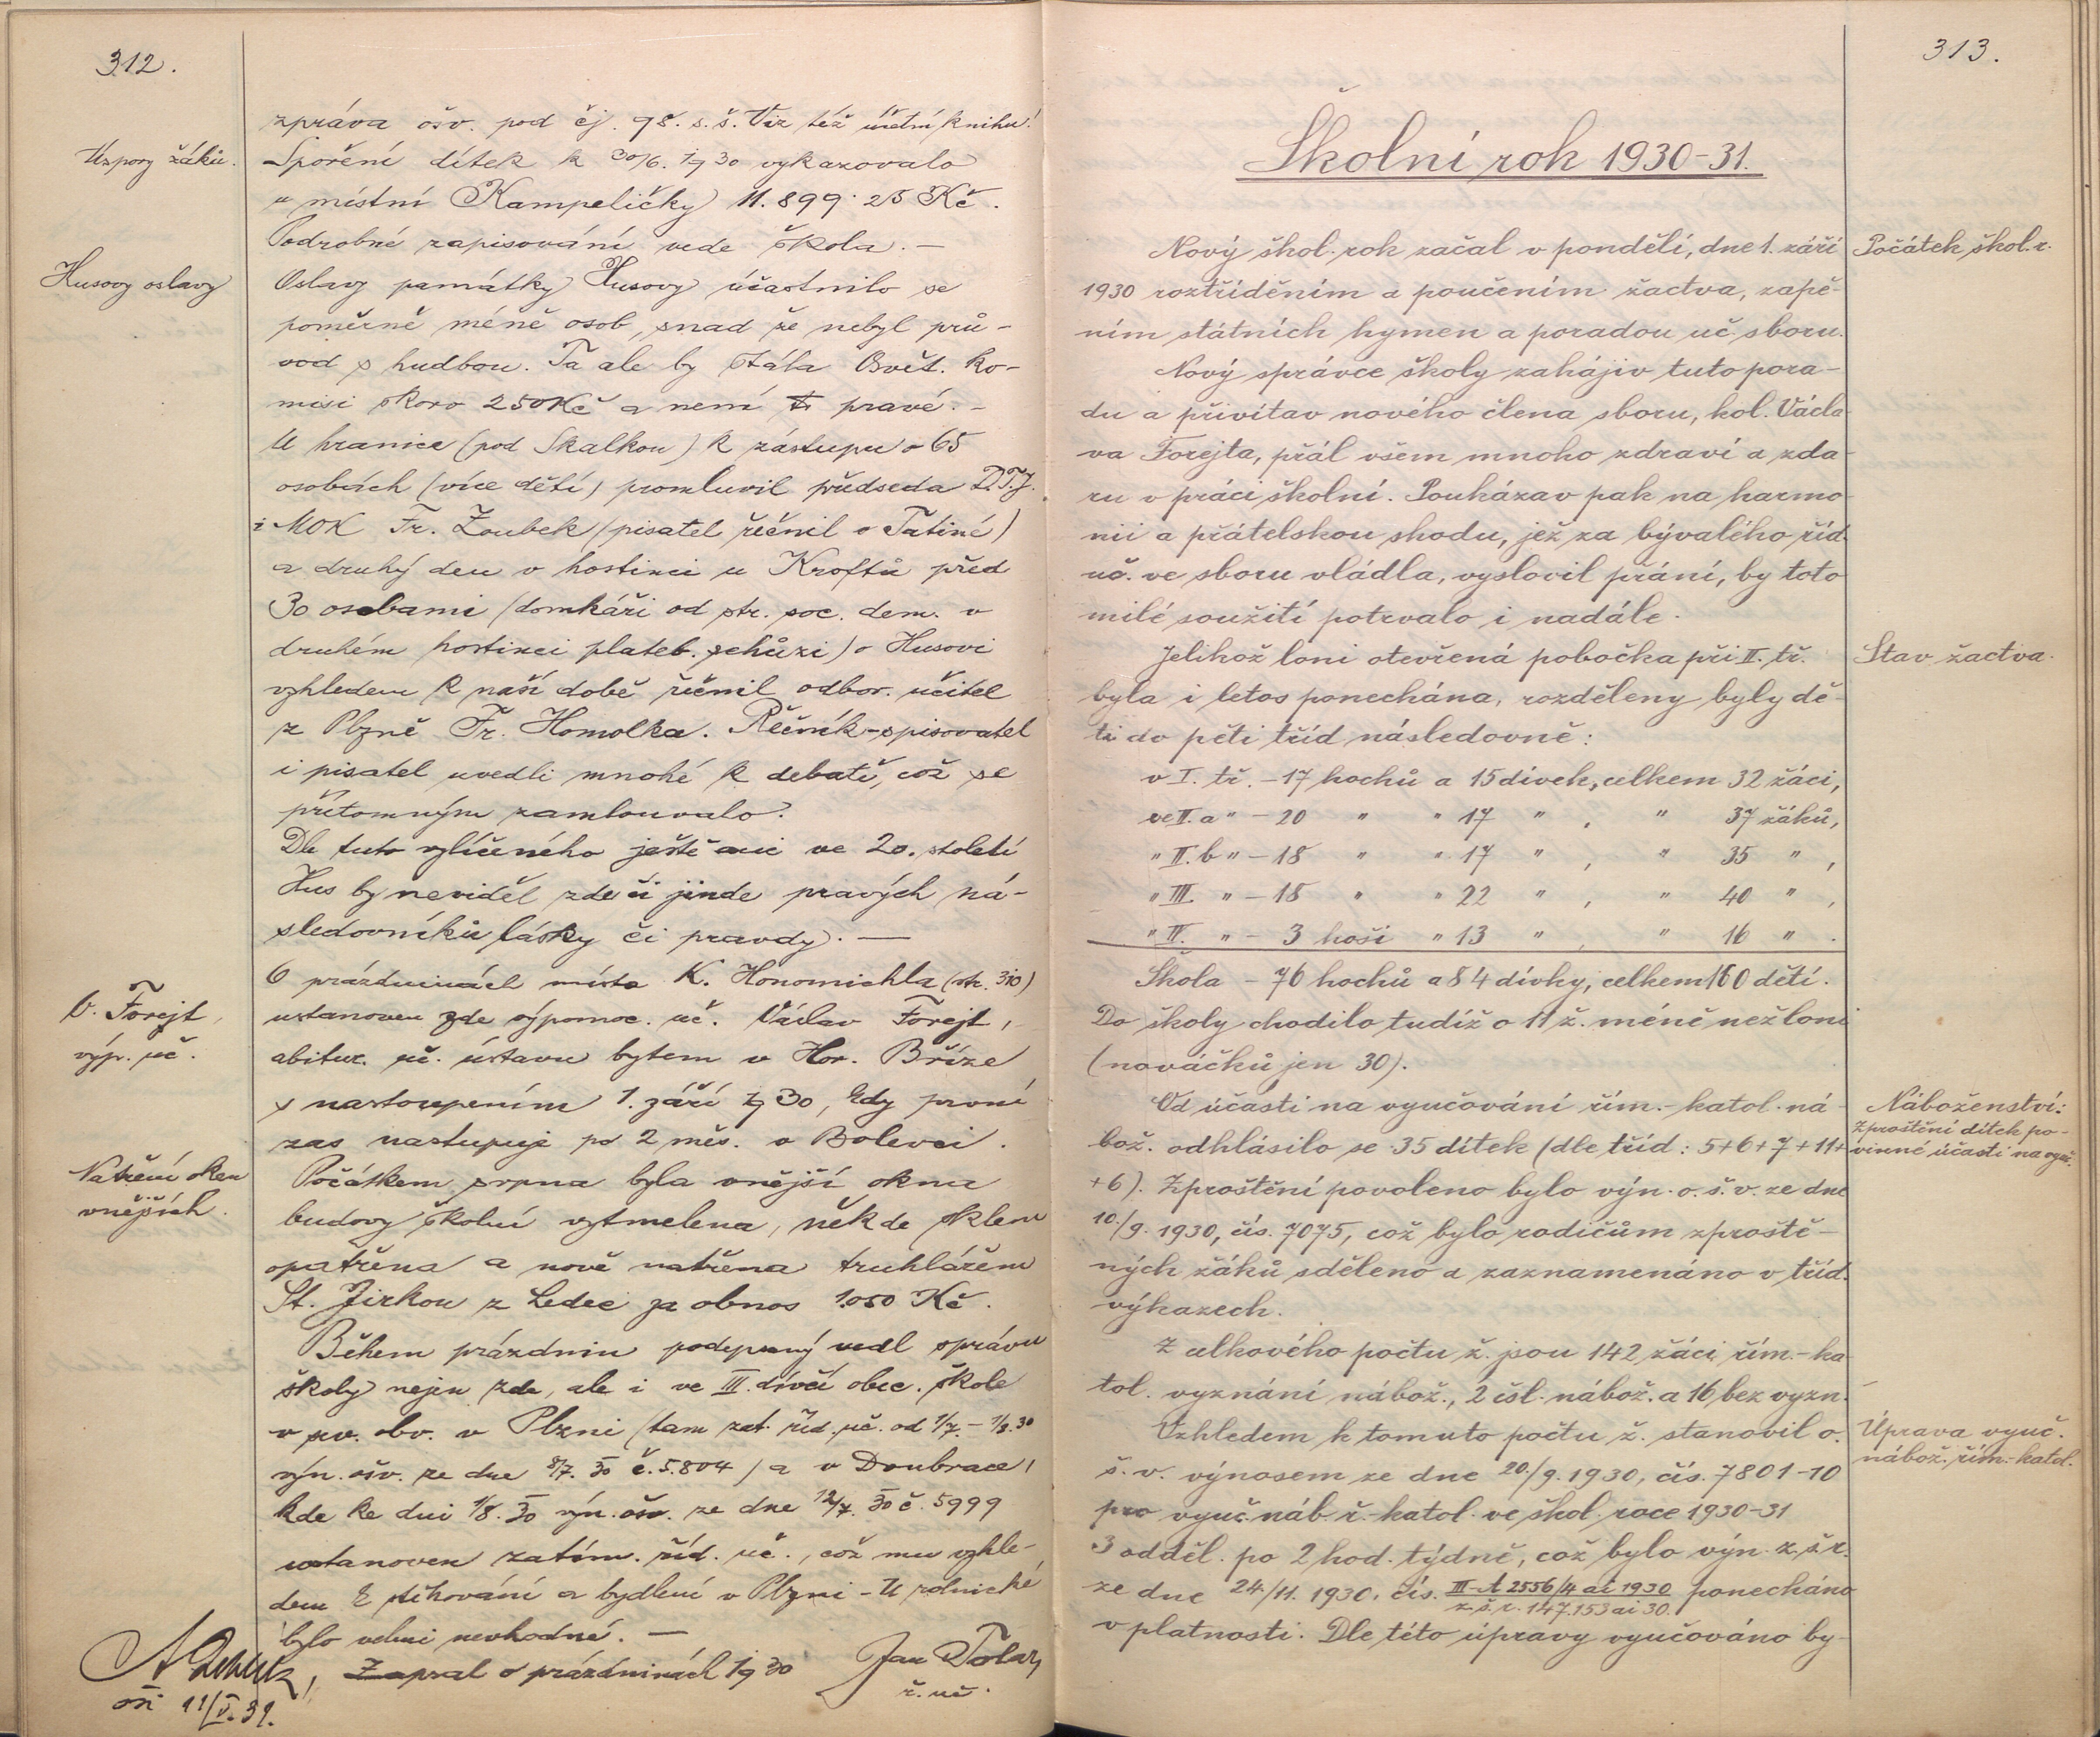 312.
zpráva ošv. pod čj. 98. s.š. Viz též účetní knihu!
Uspory žáků.
Spoření dítek k 30/6. 1930 vykazovalo
u místní Kampeličky 11.899·25 Kč.
Podrobné zapisování vede škola. —
Husovy oslavy
Oslavy památky Husovy účastnilo se
poměrně méně osob, snad že nebyl prů-
vod s hudbou. Ta ale by stála Osvět. ko-
misi skoro 250 Kč a není to pravé. -
U hranice (pod Skalkou) k zástupu o 65
osobách (více dětí) promluvil předseda D.T.J.
i MOK Fr. Zoubek (pisatel řečnil v Tatiné)
a druhý den v hostinci u Kroftů před
30 osobami (domkáři od str. soc. dem. v
druhém hostinci plateb. schůzi) o Husovi
vzhledem k naší době řečnil odbor. učitel
z Plzně Fr. Homolka. Řečník-spisovatel
i pisatel uvedli mnohé k debatě, což se
přítomným zamlouvalo.
Dle tuto vylíčeného ještě ani ve 20. století
Hus by neviděl zde či jinde pravých ná-
sledovníků lásky či pravdy. —
V. Forejt,
výp. uč.
O prázdninách místo K. Honomichla (str. 310)
ustanoven zde výpomoc. uč. Václav Forejt,
abitur. uč. ústavu bytem v Hor. Bříze
s nastoupením 1. září 1930, kdy první
zas nastupuje po 2 měs. v Bolevci.
Natření oken
vnějších.
Počátkem srpna byla vnější okna
budovy školní vytmelena, někde sklem
opatřena a nově natřena truhlářem
St. Jirkou z Ledec za obnos 1.050 Kč.
Během prázdnin podepsaný vedl správu
školy nejen zde, ale i ve III. dívčí obec. škole
v sv. obv. v Plzni (tam zat. říd. uč. od 1/7. – 1/8. 30
výn. ošv. ze dne 8/7. 30 č. 5.804) a v Doubravce,
kde ke dni 1/8. 30 výn. ošv. ze dne 12/7. 30 č. 5999
ustanoven zatím. říd. uč., což mu vzhle-
dem k stěhování a bydlení v Plzni - U rolnické
bylo velmi nevhodné. —
Zapsal o prázdninách 1930 Jan Tolar,
ř. uč.
oši 11/V. 31.
313.
Školní rok 1930-31.
Počátek škol. r.
Nový škol. rok začal v pondělí, dne 1. září
1930 roztříděním a poučením žactva, zapě-
ním státních hymen a poradou uč. sboru.
Nový správce školy zahájiv tuto pora-
du a přivítav nového člena sboru, kol. Václa-
va Forejta, přál všem mnoho zdraví a zda-
ru v práci školní. Poukázav pak na harmo-
nii a přátelskou shodu, jež za bývalého říd.
uč. ve sboru vládla, vyslovil přání, by toto
milé soužití potrvalo i nadále.
Stav žactva.
Jelikož loni otevřená pobočka při II. tř.
byla i letos ponechána, rozděleny byly dě-
ti do pěti tříd následovně:
v I. tř. - 17 hochů a 15 dívek, celkem 32 žáci,
ve II. a " - 20 " " 17 " , " 37 žáků,
" II. b " - 18 " " 17 " , " 35 " ,
" III. " - 18 " " 22 " , " 40 " ,
" IV. " - 3 hoši " 13 " , " 16 " .
Škola - 76 hochů a 84 dívky, celkem 160 dětí.
Do školy chodilo tudíž o 11 ž. méně než loni
(nováčků jen 30).
Náboženství:
Zproštění dítek po-
vinné účasti na vyuč.
Od účasti na vyučování řím.-katol. ná-
bož. odhlásilo se 35 dítek (dle tříd: 5+6+7+11+
+6). Zproštění povoleno bylo výn. o. š. v. ze dne
10./9. 1930, čís. 7075, což bylo rodičům zproště-
ných žáků sděleno a zaznamenáno v tříd.
výkazech.
Z celkového počtu ž. jsou 142 žáci řím.-ka-
tol. vyznání nábož., 2 čsl. nábož. a 16 bez vyzn.
Úprava vyuč.
nábož. řím.-katol.
Vzhledem k tomuto počtu ž. stanovil o.
š. v. výnosem ze dne 20./9. 1930, čís. 7801-10
pro vyuč. náb. ř.-katol. ve škol. roce 1930-31
3 odděl. po 2 hod. týdně, což bylo výn. z. š. r.
ze dne 24./11. 1930, čís. III-A 2556/4 ai 1930 ponecháno
z. š. r. 147.153 ai 30.
v platnosti. Dle této úpravy vyučováno by-